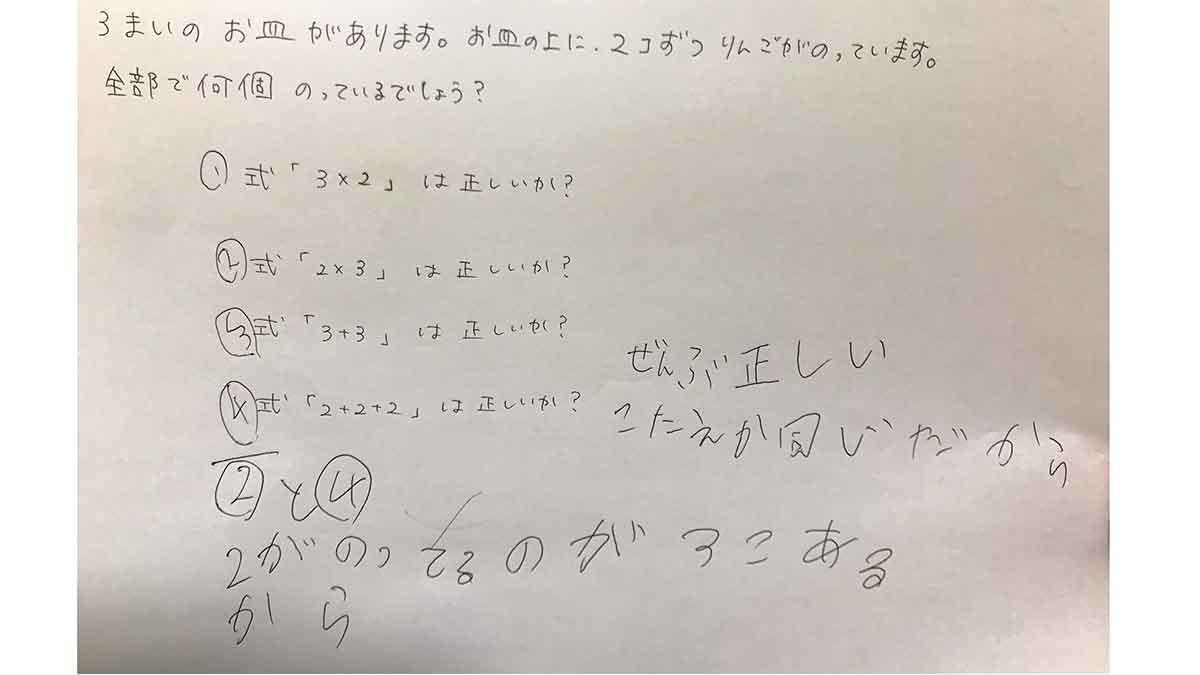 3まいのお皿があります。お皿の上に、2コずつりんごがのっています。
全部で何個のっているでしょう?
① 式「3×2」は正しいか?
② 式「2×3」は正しいか?
③ 式「3+3」は正しいか?
④ 式「2+2+2」は正しいか?
ぜんぶ正しい
こたえが同じだから
②と④
2がのってるのが3こある
から